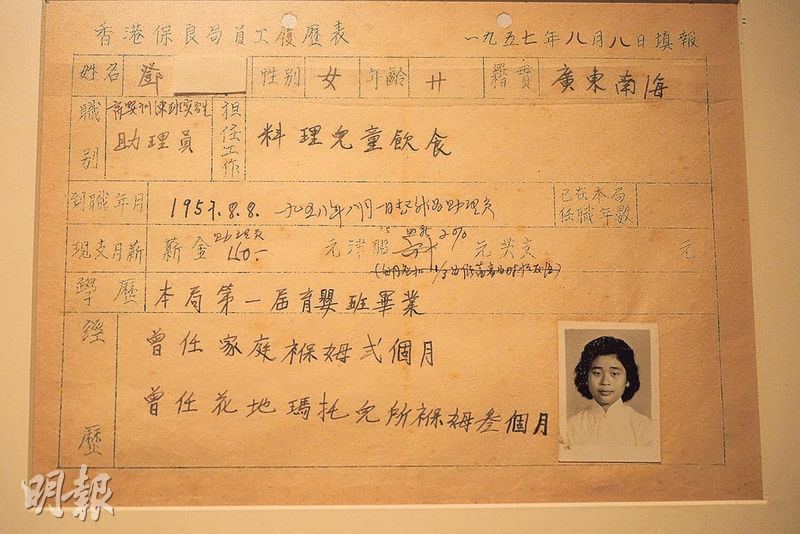 香港保良局員工履歷表 一九五七年八月八日填報
姓名 鄧 性別 女 年齡 廿 籍貫 廣東南海
職別 助理員 担任工作 料理兒童飲食
到職年月 1957.8.8. 已在本局任職年數
現支月薪 薪金 150.- 元津貼 元共支 元
學歷 本局第一届育嬰班畢業
經歷 曾任家庭褓姆弍個月
曾任花地瑪托兒所褓姆叁個月
明報